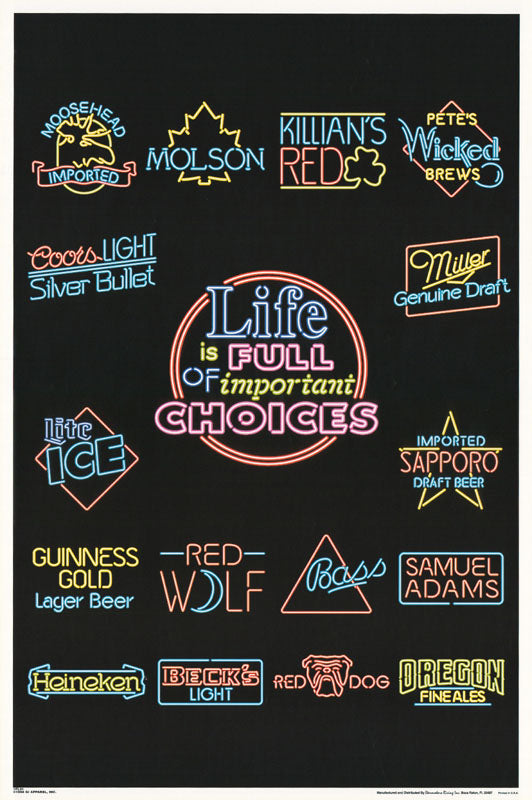 MOOSEHEAD
IMPORTED
MOLSON
KILLIAN'S
RED
PETE'S
Wicked
BREWS
Coors LIGHT
Silver Bullet
Miller
Genuine Draft
Life
is FULL
OF important
CHOICES
Lite
ICE
IMPORTED
SAPPORO
DRAFT BEER
GUINNESS
GOLD
Lager Beer
RED
WOLF
Bass
SAMUEL
ADAMS
Heineken
BECK'S
LIGHT
RED DOG
OREGON
FINE ALES
APPAREL, INC.
Manufactured and Distributed By
Boca Raton, FL
Printed in U.S.A.